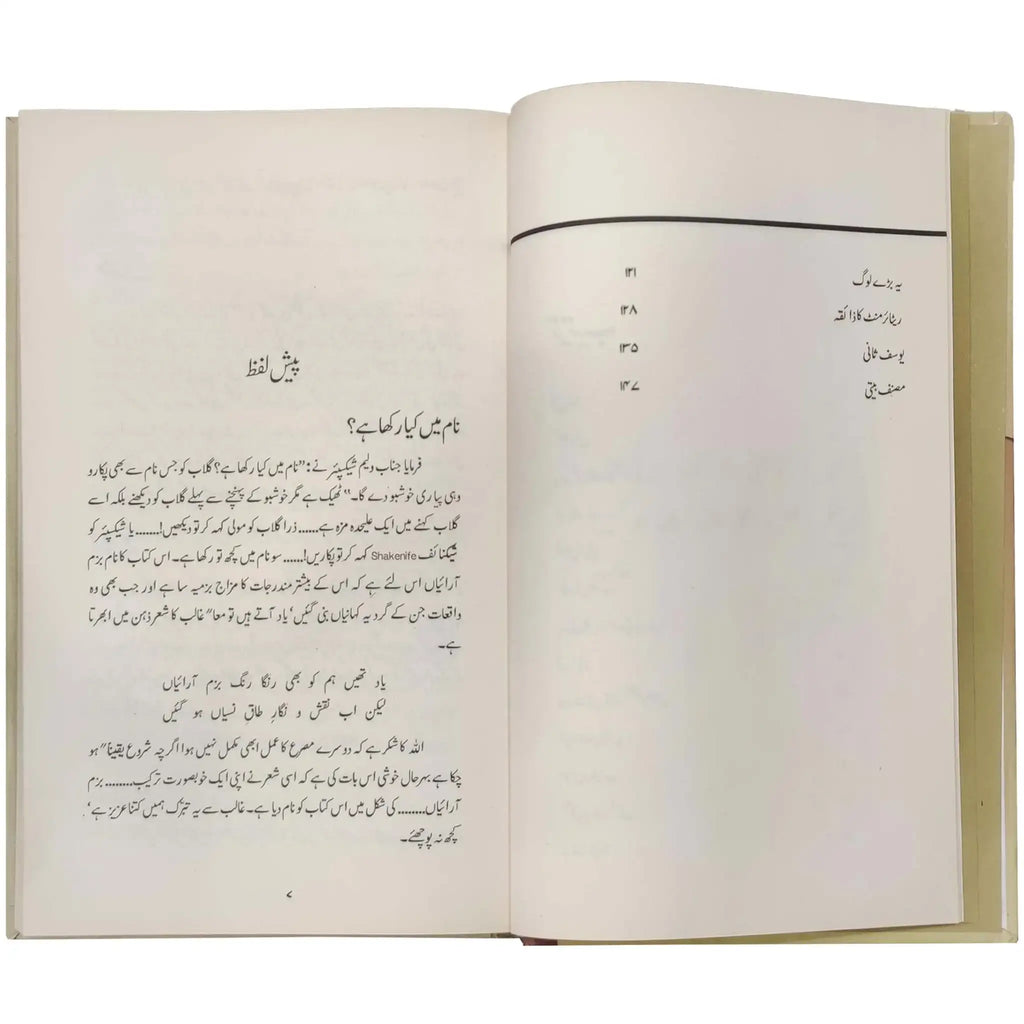 یہ بڑے لوگ ۱۲۱
ریٹائرمنٹ کا ذائقہ ۱۲۸
یوسف ثانی ۱۳۵
مصنف بیتی ۱۴۷
پیش لفظ
نام میں کیا رکھا ہے؟
فرمایا جناب ولیم شیکسپئر نے: "نام میں کیا رکھا ہے؟ گلاب کو جس نام سے بھی پکارو
وہی پیاری خوشبو دے گا۔" ٹھیک ہے مگر خوشبو کے پہنچنے سے پہلے گلاب کو دیکھنے بلکہ اسے
گلاب کہنے میں ایک علیحدہ مزہ ہے...... ذرا گلاب کو مولی کہہ کر تو دیکھیں!....... یا شیکسپئر کو
شیکنائف Shakenife کہہ کر تو پکاریں!...... سو نام میں کچھ تو رکھا ہے۔ اس کتاب کا نام بزم
آرائیاں اس لئے ہے کہ اس کے بیشتر مندرجات کا مزاج بزمیہ سا ہے اور جب بھی وہ
واقعات جن کے گرد یہ کہانیاں بنی گئیں' یاد آتے ہیں تو معا" غالب کا شعر ذہن میں ابھرتا
ہے۔
یاد تھیں ہم کو بھی رنگا رنگ بزم آرائیاں
لیکن اب نقش و نگار طاقِ نسیاں ہو گئیں
اللہ کا شکر ہے کہ دوسرے مصرع کا عمل ابھی مکمل نہیں ہوا اگرچہ شروع یقیناً" ہو
چکا ہے بہرحال خوشی اس بات کی ہے کہ اسی شعر نے اپنی ایک خوبصورت ترکیب........ بزم
آرائیاں........ کی شکل میں اس کتاب کو نام دیا ہے۔ غالب سے یہ تبرّک ہمیں کتنا عزیز ہے'
کچھ نہ پوچھئے۔
۷